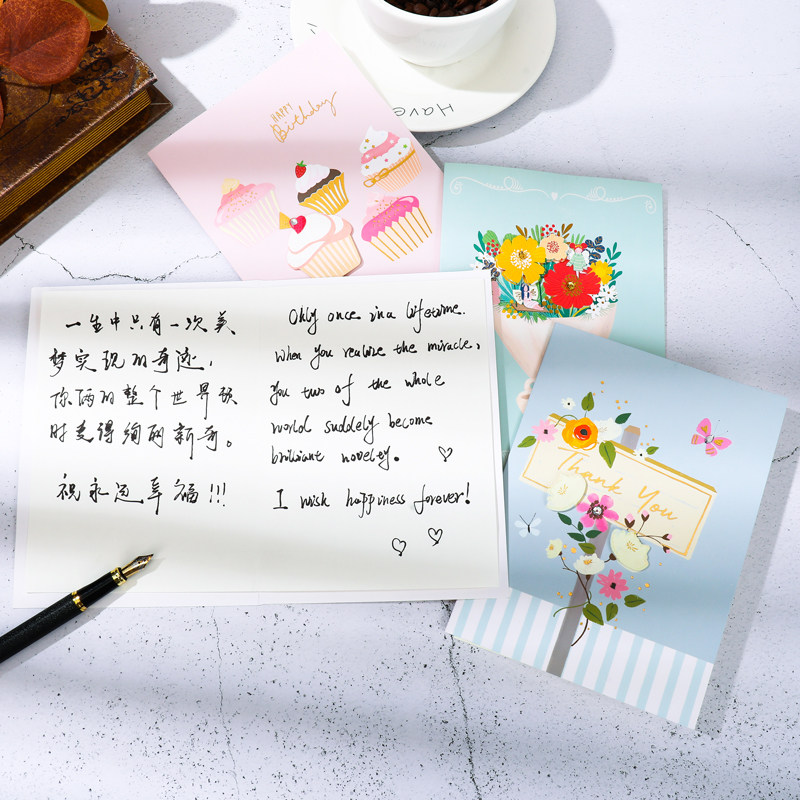 Have
HAPPY
Birthday
一生中只有一次美
梦实现的奇迹,
你俩的整个世界顷
时变得绚丽新奇。
祝永远幸福!!!
Only once in a lifetime.
When you realize the miracle,
you two of the whole
world suddely become
brilliant novelty.
I wish happiness forever!
Thank You